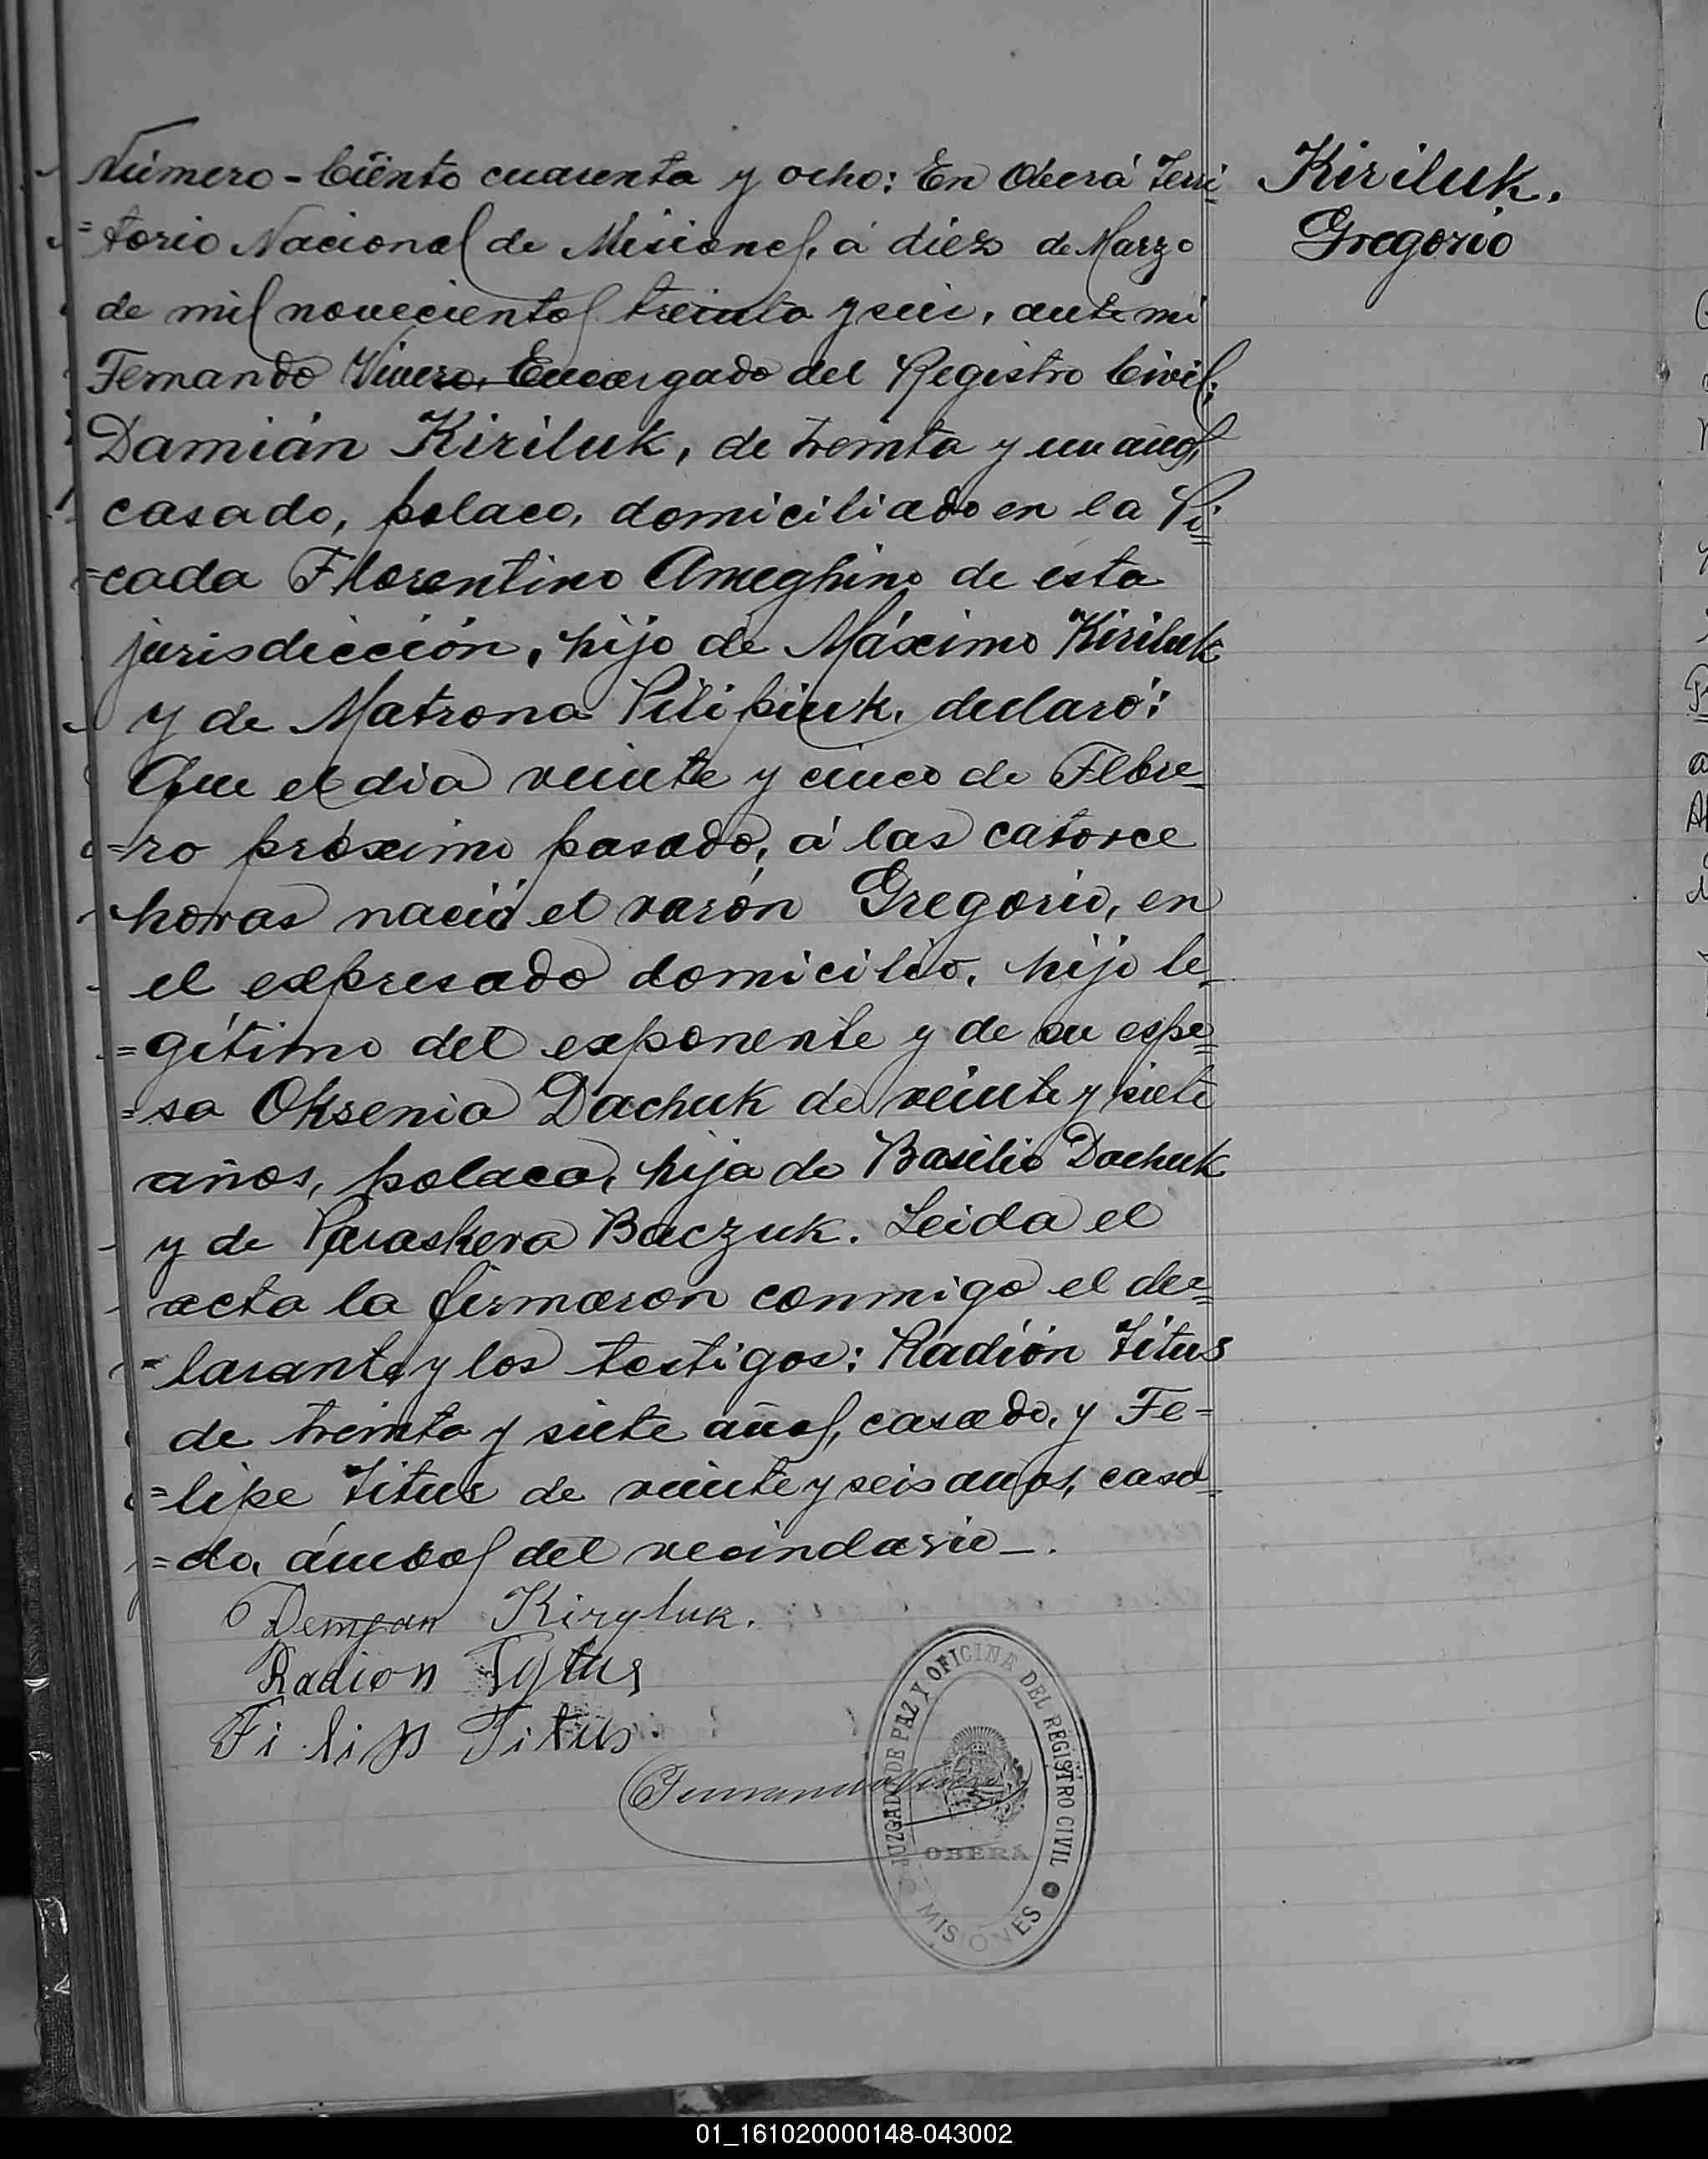 Número - Ciento cuarenta y ocho: En Oberá Terri
= torio Nacional de Misiones, á diez de Marzo
de mil novecientos treinta y seis, ante mi
Fernando Vivero, Encargado del Registro Civil;
Damián Kiriluk, de treinta y un años,
casado, polaco, domiciliado en la Pi=
=cada Florentino Ameghino de ésta
jurisdicción, hijo de Máximo Kiriluk
y de Matrona Pilipiuk, declaró:
Que el día veinte y cinco de Febre-
=ro próximo pasado, á las catorce
horas nació el varón Gregorio, en
el expresado domicilio, hijo le-
=gítimo del exponente y de su espo=
=sa Oksenia Dachuk de veinte y siete
años, polaca, hija de Basilio Dachuk
y de Paraskeva Baczuk. Leida el
acta la firmaron conmigo el dec=
=larante y los testigos: Radión Titus
de treinta y siete años, casado, y Fe=
=lipe Titus de veinte y seis años, casa=
=do, ámbos del vecindario_.
Demjan Kiryluk.
Radion Tytus
Filip Titus
Fernando Vivero
Kiriluk.
Gregorio
JUZGADO DE PAZ Y OFICINA DEL REGISTRO CIVIL
OBERÁ
MISIONES
01_161020000148-043002